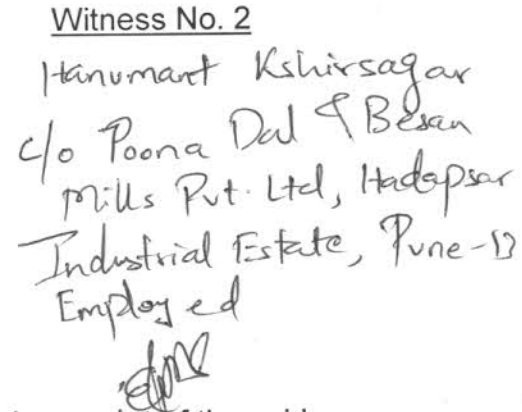 Witness No. 2
Hanumant Kshirsagar
c/o Poona Dal & Besan
Mills Pvt. Ltd, Hadapsar
Industrial Estate, Pune-13
Employed